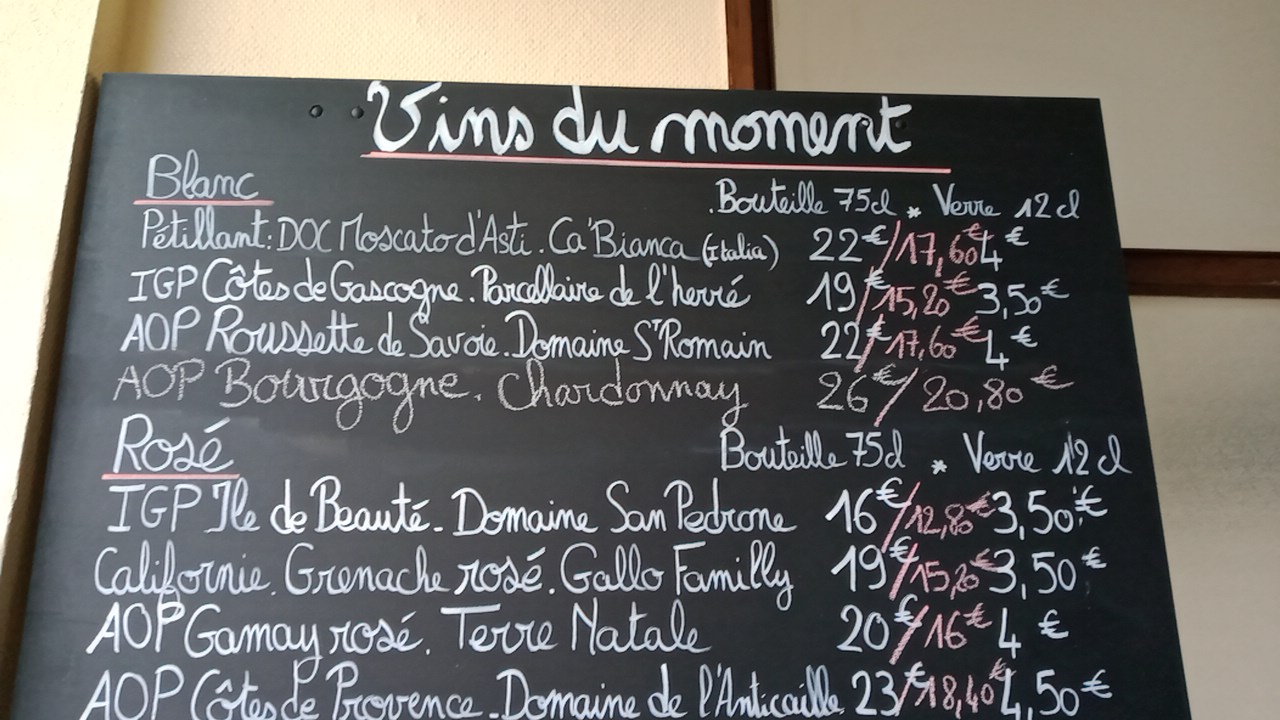 Vins du moment
Blanc
Bouteille 75cl * Verre 12 cl
Pétillant: DOC Moscato d'Asti. Ca'Bianca (Italia) 22€/17,60€ 4€
IGP Côtes de Gascogne. Parcellaire de l'herré 19€/15,20€ 3,50€
AOP Roussette de Savoie. Domaine St Romain 22€/17,60€ 4€
AOP Bourgogne. Chardonnay 26€/20,80€
Rosé
Bouteille 75cl * Verre 12 cl
IGP Ile de Beauté. Domaine San Pedrone 16€/12,80€ 3,50€
Californie. Grenache rosé. Gallo Familly 19€/15,20€ 3,50€
AOP Gamay rosé. Terre Natale 20€/16€ 4€
AOP Côtes de Provence. Domaine de l'Anticaille 23€/18,40€ 4,50€